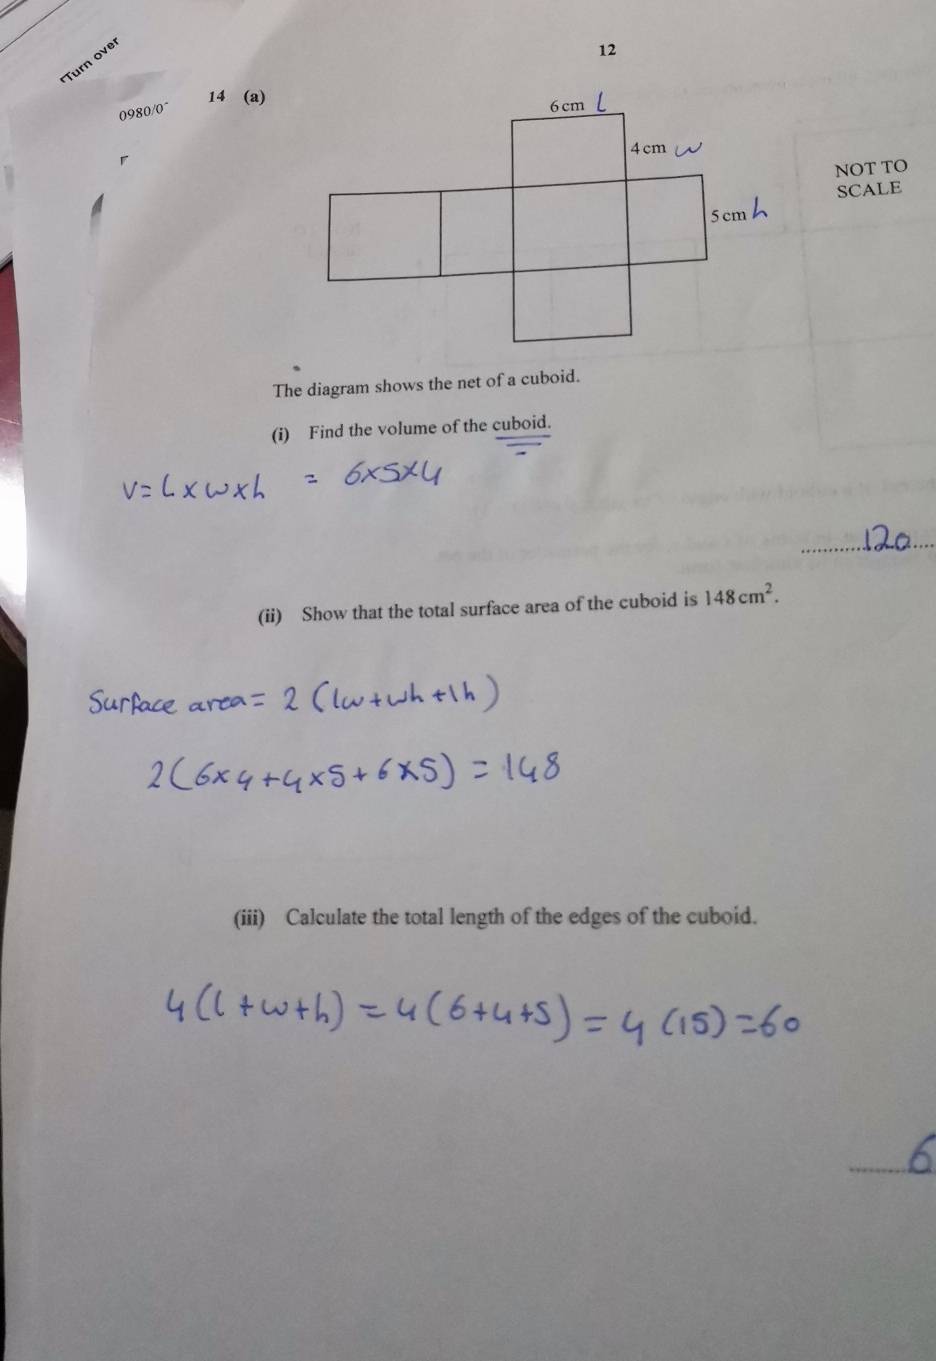 Turn over
12
0980/0
14 (a)
6 cm L
4 cm w
NOT TO
SCALE
5 cm h
The diagram shows the net of a cuboid.
(i) Find the volume of the cuboid.
V = L x w x h = 6x5x4
120
(ii) Show that the total surface area of the cuboid is 148 cm².
Surface area = 2 (lw + wh + lh)
2(6x4+4x5+6x5) = 148
(iii) Calculate the total length of the edges of the cuboid.
4(l+w+h) = 4(6+4+5) = 4 (15) = 60
6